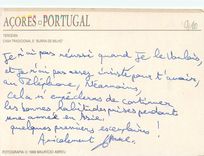 AÇORES - PORTUGAL
TERCEIRA
CASA TRADICIONAL E "BURRA DE MILHO"
Je n'ai pas réussi quand je le voulais,
et je n'ai pas assez insisté pour t'avoir
au téléphone,
Cela n'empêchera de continuer
les bonnes habitudes prises pendant
une année en Asie.
quelques premiers exemplaires !
Amicalement
FOTOGRAFIA © 1999 MAURICIO ABREU